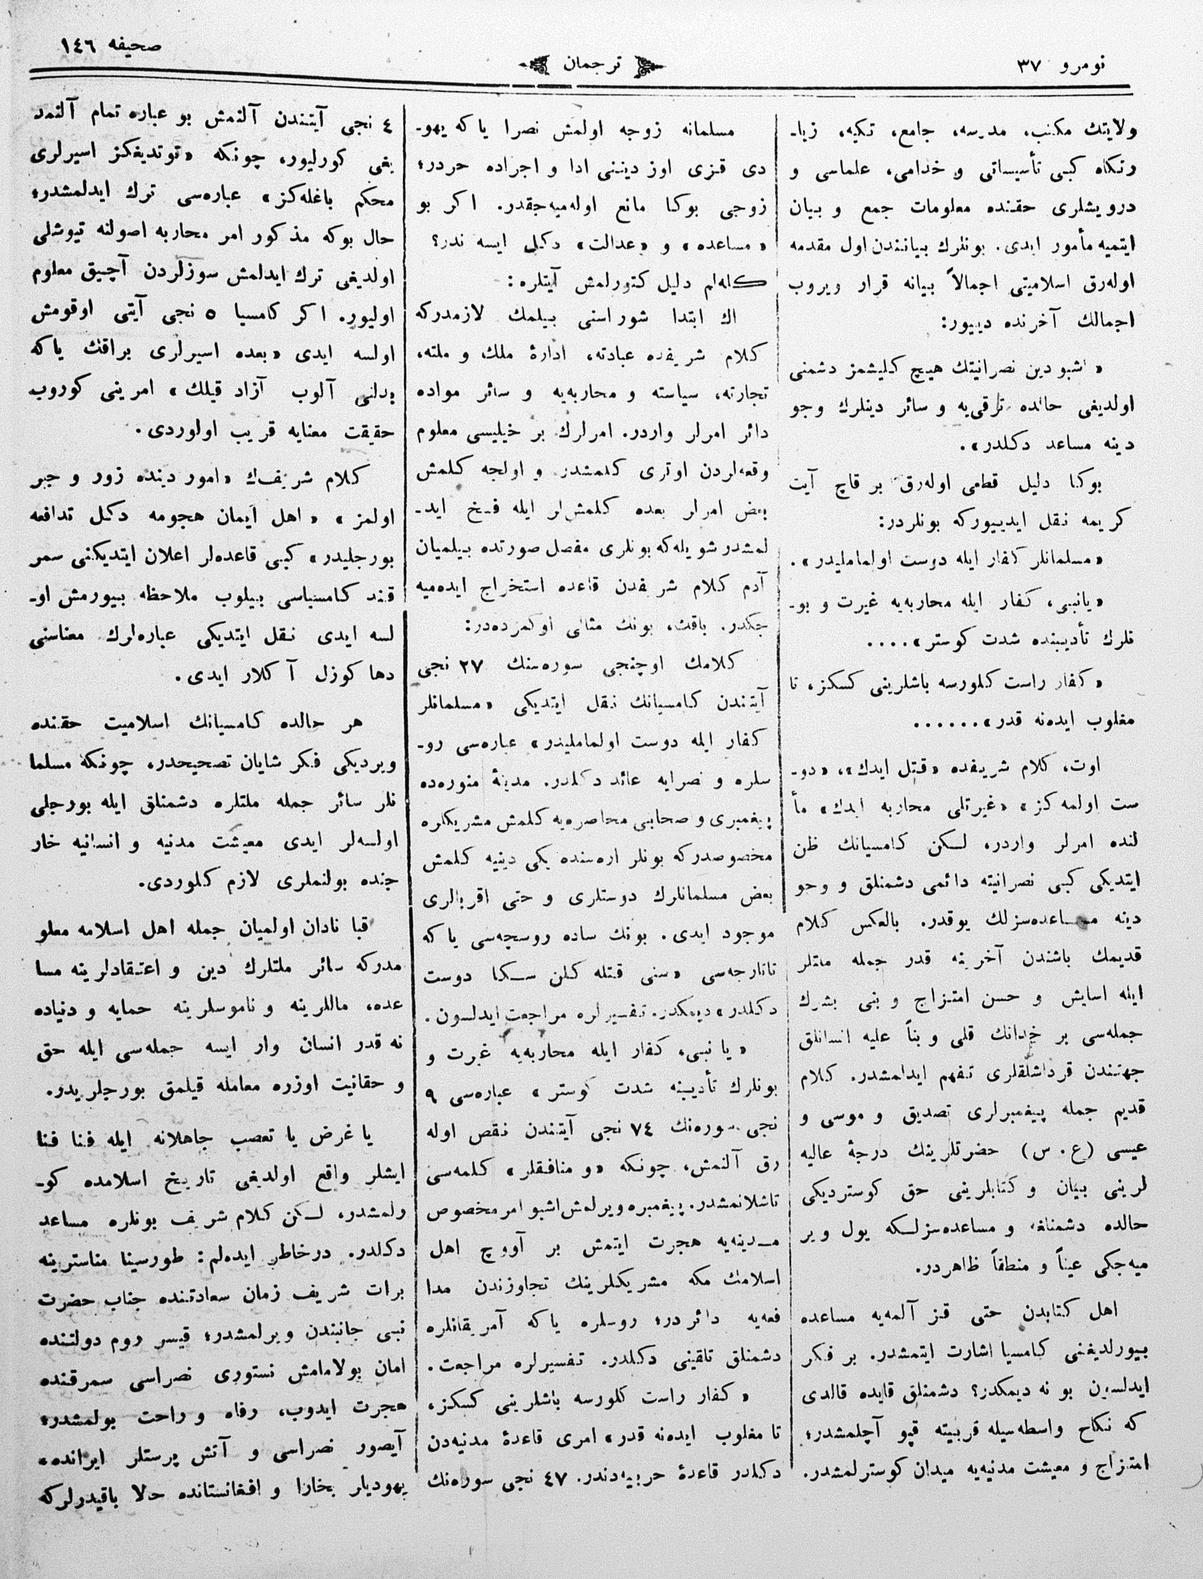 نومرو ٣٧
ترجمان
صحيفه ١٤٦
ولايتك مكتب، مدرسه، جامع، تكيه، زيا-
رتكاه كبى تأسيساتى و خدامى، علماسى و
درويشلرى حقنده معلومات جمع و بيان
ايتميه مأمور ايدى. بونلرك بيانندن اول مقدمه
اوله‌رق اسلاميتى اجمالاً بيانه قرار ويروب
اجمالك آخرنده دييور:
«اشبو دين نصرانيتك هيچ كليشمز دشمنى
اولديغى حالده ترقى‌يه و سائر دينلرك وجو
دينه مساعد دكلدر».
بوكا دليل قطعى اوله‌رق بر قاچ آيت
كريمه نقل ايدييوركه بونلردر:
«مسلمانلر كفار ايله دوست اولماماليدر».
«يانبى، كفار ايله محاربه‌يه غيرت و بو-
نلرك تأديبنده شدت كوستر»....
«كفار راست كلورسه باشلرينى كسكز، تا
مغلوب ايده‌نه قدر»......
اوت، كلام شريفده «قتل ايدك»، «دو-
ست اولمه‌كز» «غيرتلى محاربه ايدك» مأ
لنده امرلر واردر، لسكن كامسيانك ظن
ايتديكى كبى نصرانيته دائمى دشمنلق و وجو
دينه مساعده‌سزلك يوقدر. بالعكس كلام
قديمك باشندن آخرينه قدر جمله ملتلر
ايله اسايش و حسن امتزاج و بنى بشرك
جمله‌سى بر خدانك قلى و بناً عليه انسانلق
جهتندن قرداشلقلرى تفهم ايدلمشدر. كلام
قديم جمله پيغمبرلرى تصديق و موسى و
عيسى (ع.س) حضرتلرينك درجهٔ عاليه
لرينى بيان و كتابلرينى حق كوستردیكى
حالده دشمنلغه و مساعده‌سزلكه يول وير
ميه‌جكى عيناً و منطقاً ظاهردر.
اهل كتابدن حتى قز آلمه‌يه مساعده
بيورلديغنى كامسيا اشارت ايتمشدر. بر فكر
ايدلسون بو نه ديمكدر؟ دشمنلق قايده قالدى
كه نكاح واسطه‌سيله قربيته قپو آچلمشدر؛
امتزاج و معيشت مدنيه‌يه ميدان كوسترلمشدر.
مسلمانه زوجه اولمش نصرا ياكه يهو-
دى قزى اوز دينى ادا و اجراده حردر؛
زوجى بوكا مانع اوله‌ميه‌جقدر. اكر بو
«مساعده» و «عدالت» دكل ايسه ندر؟
كله‌لم دليل كتورلمش آيتلره:
اك ابتدا شوراسنى بيلمك لازمدركه
كلام شريفده عبادته، ادارهٔ ملك و ملته،
تجارته، سياسته و محاربه‌يه و سائر مواده
دائر امرلر واردر. امرلرك بر خيليسى معلوم
وقعه‌لردن اوترى كلمشدر و اولجه كلمش
بعض امرلر بعده كلمش‌لر ايله فسخ ايد-
لمشدر شويله‌كه بونلرى مفصل صورتده بيلميان
آدم كلام شريفدن قاعده استخراج ايده‌ميه
جكدر. باقك، بونك مثالى اوكمزده‌در:
كلامك اوچنجى سوره‌سنك ٢٧ نجى
آيتندن كامسيانك نقل ايتديكى «مسلمانلر
كفار ايله دوست اولماماليدر» عباره‌سى رو-
سلره و نصرايه عائد دكلدر. مدينهٔ منوره‌ده
پيغمبرى و صحابى محاصره‌يه كلمش مشركلره
مخصوصدركه بونلر اره‌سنده يكى دينيه كلمش
بعض مسلمانلرك دوستلرى و حتى اقربالرى
موجود ايدى. بونك ساده روسجه‌سى ياكه
تاتارجه‌سى «سنى قتله كلن سكا دوست
دكلدر» ديمكدر. تفسيرلره مراجعت ايدلسون.
«يا نبى، كفار ايله محاربه‌يه غيرت و
بونلرك تأديبنه شدت كوستر» عباره‌سى ٩
نجى سوره‌نك ٧٤ نجى آيتندن نقص اوله
رق آلنمش، چونكه «و منافقلر» كلمه‌سى
تاشلانمشدر. پيغمبره ويرلمش اشبو امر مخصوص
مدينه‌يه هجرت ايتمش بر آووچ اهل
اسلامك مكه مشركلرينك تجاوزندن مدا
فعه‌يه دائردر؛ روسلره ياكه آمريقانلره
دشمنلق تلقينى دكلدر. تفسيرلره مراجعت.
«كفار راست كلورسه باشلرينى كسكز،
تا مغلوب ايده‌نه قدر» امرى قاعدهٔ مدنيه‌دن
دكلدر قاعدهٔ حربيه‌دندر. ٤٧ نجى سوره‌نك
٤ نجى آيتندن آلنمش بو عباره تمام آلنمد
يغى كورليور، چونكه «توتديغكز اسيرلرى
محكم باغله‌كز» عباره‌سى ترك ايدلمشدر؛
حال بوكه مذكور امر محاربه اصولنه تيوشلى
اولديغى ترك ايدلمش سوزلردن آچيق معلوم
اوليور. اكر كامسيا ٥ نجى آيتى اوقومش
اولسه ايدى «بعده اسيرلرى براقك ياكه
بدلنى آلوب آزاد قيلك» امرينى كوروب
حقيقت معنايه قريب اولوردى.
كلام شريفك «امور دينده زور و جبر
اولمز» «اهل ايمان هجومه دكل تدافعه
بورجليدر» كبى قاعده‌لر اعلان ايتديكنى سمر
قند كامسياسى بيلوب ملاحظه بيورمش او-
لسه ايدى نقل ايتديكى عباره‌لرك معناسنى
دها كوزل آكلار ايدى.
هر حالده كامسيانك اسلاميت حقنده
ويرديكى فكر شايان تصحيحدر، چونكه مسلما
نلر سائر جمله ملتلره دشمنلق ايله بورجلى
اولسه‌لر ايدى معيشت مدنيه و انسانيه خار
جنده بولنملرى لازم كلوردى.
قبا نادان اولميان جمله اهل اسلامه معلو
مدركه سائر ملتلرك دين و اعتقادلرينه مسا
عده، ماللرينه و ناموسلرينه حمايه و دنياده
نه قدر انسان وار ايسه جمله‌سى ايله حق
و حقانيت اوزره معامله قيلمق بورجلريدر.
يا غرض يا تعصب جاهلانه ايله فنا فنا
ايشلر واقع اولديغى تاريخ اسلامده كو-
رلمشدر، لسكن كلام شريف بونلره مساعد
دكلدر. درخاطر ايده‌لم: طورسينا مناسترينه
برات شريف زمان سعادتنده جناب حضرت
نبى جانبندن ويرلمشدر؛ قيسر روم دولتنده
امان بولامامش نستورى نصراسى سمرقنده
هجرت ايدوب، رفاه و راحت بولمشدر؛
آيصور نصراسى و آتش پرستلر ايرانده،
يهوديلر بخارا و افغانستانده حالا باقيدرلركه